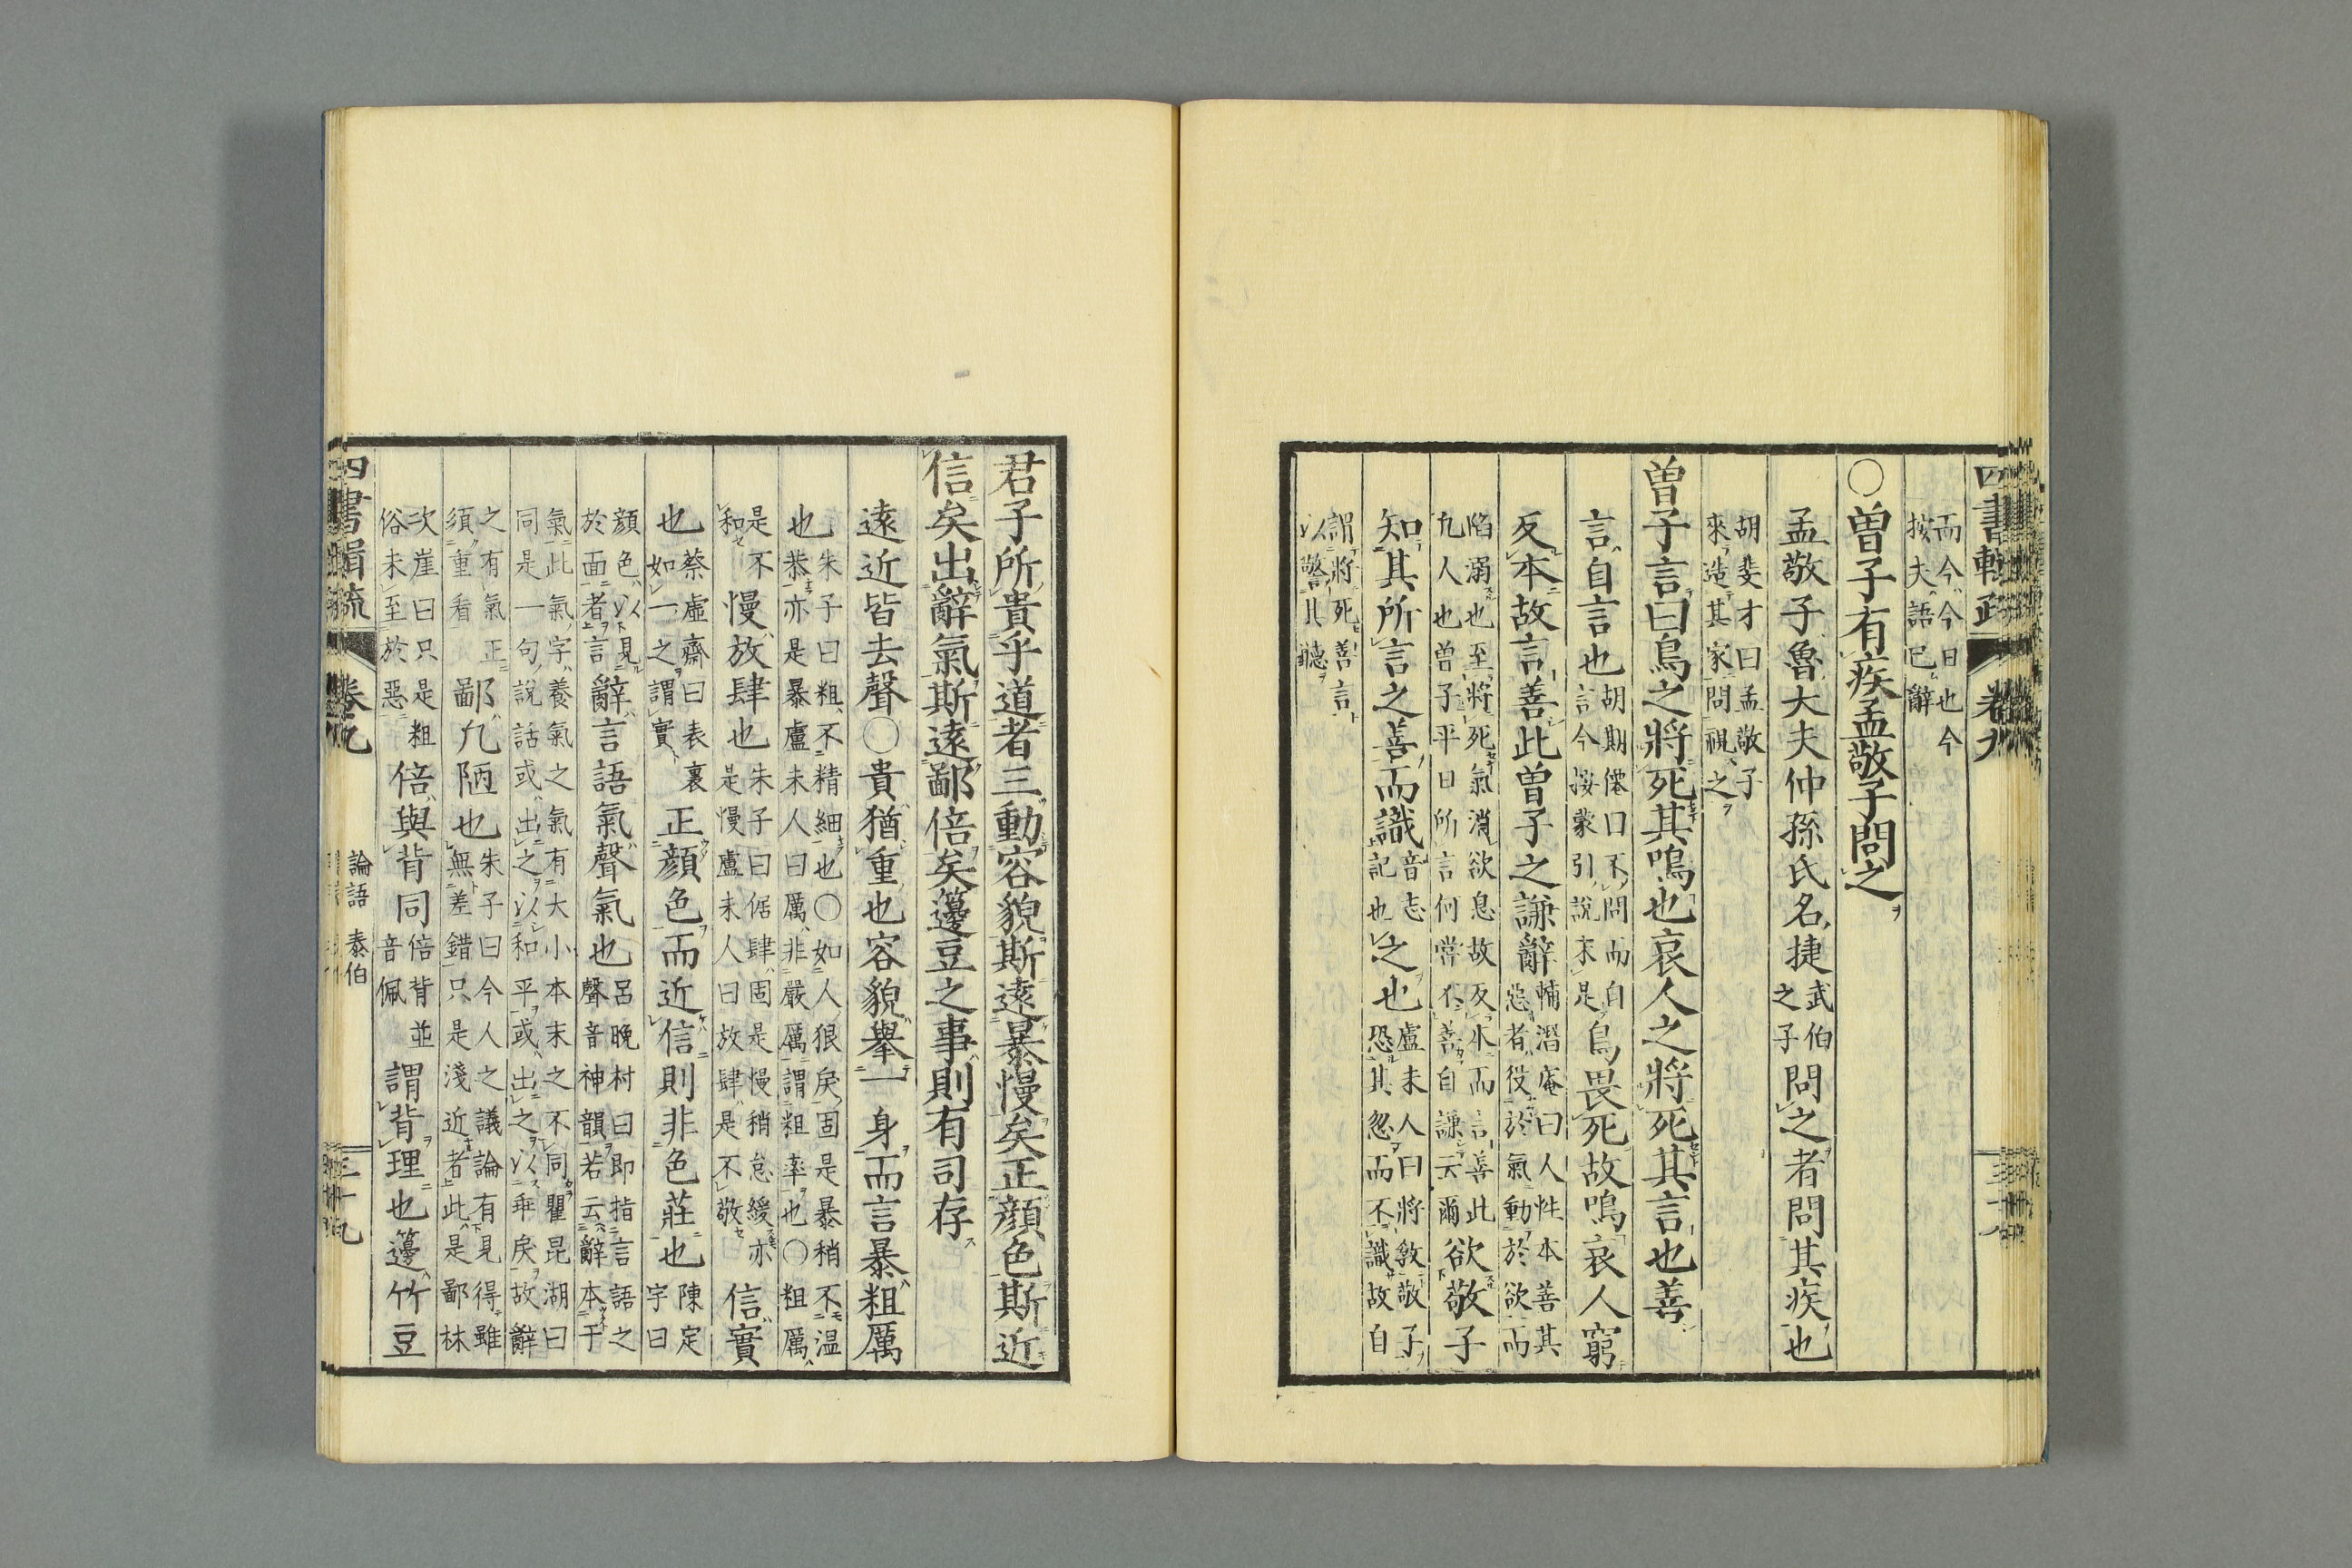 而今今日也今
按夫語已辭
○曽子有疾孟敬子問之
孟敬子魯大夫仲孫氏名捷武伯之子問之者問其疾也
胡斐才曰孟敬子
來造其家問視之
曽子言曰鳥之將死其鳴也哀人之將死其言也善
言自言也胡期僊曰不問而自言今按蒙引說末是鳥畏死故鳴哀人窮
反本故言善此曽子之謙辭輔潛庵曰人性本善其惡者役於氣動於欲而
陷溺也至將死氣消欲息故反本而言善此
凡人也曽子平日所言何嘗不善自謙云爾欲敬子
知其所言之善而識音志記也之也盧未人曰將敎敬子恐其忽而不識故自
謂將死善言
以警其聽
君子所貴乎道者三動容貌斯遠暴慢矣正顔色斯近
信矣出辭氣斯遠鄙倍矣籩豆之事則有司存
遠近皆去聲○貴猶重也容貌舉一身而言暴粗厲
也朱子曰粗不精細也○如人狠戾固是暴稍不温
恭亦是暴盧未人曰厲非嚴厲謂粗率也○粗厲
是不
和慢放肆也朱子曰倨肆固是慢稍怠緩亦
是慢盧未人曰放肆是不敬信實
也蔡虛齋曰表裏如一之謂實正顔色而近信則非色莊也陳定宇曰
顔色以見
於面者言辭言語氣聲氣也呂晩村曰即指言語之聲音神韻若云辭本于
氣此氣字養氣之氣有大小本末之不同瞿昆湖曰
同是一句說話或出之以和平或出之以乖戾故辭
之有氣正
須重看鄙凡陋也朱子曰今人之議論有見得雖
無差錯只是淺近者此是鄙林
次崖曰只是粗
俗未至於惡倍與背同倍背並音佩謂背理也籩竹豆
四書輯疏
卷九
論語
泰伯
三十九